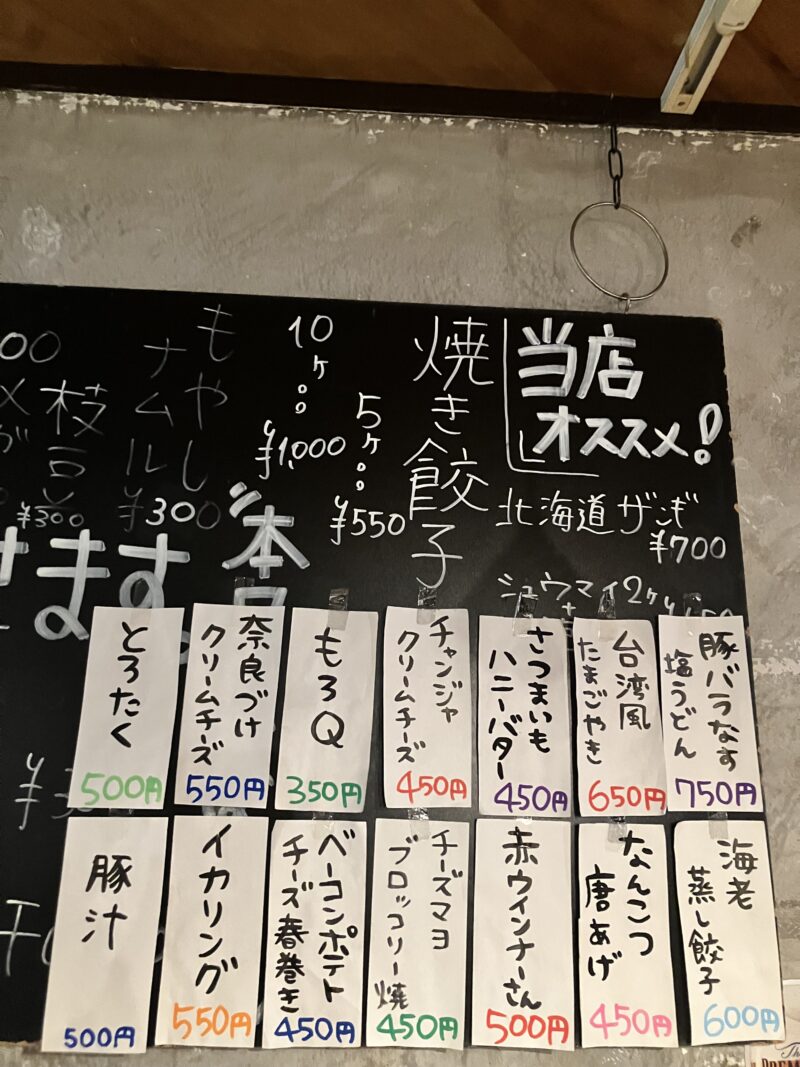 当店
オススメ!
北海道ザンギ
¥700
シュウマイ2ケ
焼き餃子
5ケ。。
¥550
10ケ。。
¥1,000
もやし
ナムル
¥300
枝豆
¥300
00
ます。
本日
豚バラなす
塩うどん
750円
台湾風
たまごやき
650円
さつまいも
ハニーバター
450円
チャンジャ
クリームチーズ
450円
もろQ
350円
奈良づけ
クリームチーズ
550円
とろたく
500円
海老
蒸し餃子
600円
なんこつ
唐あげ
450円
赤ウインナーさん
500円
チーズマヨ
ブロッコリー焼
450円
ベーコンポテト
チーズ春巻き
450円
イカリング
550円
豚汁
500円